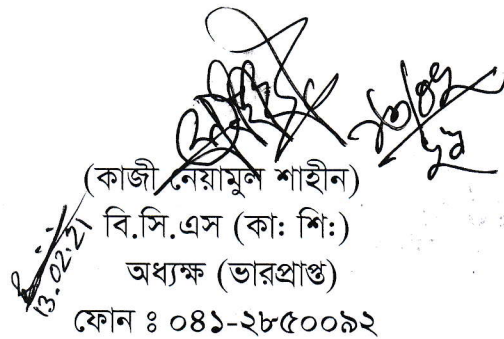 (কাজী নেয়ামুল শাহীন)
বি.সি.এস (কা: শি:)
অধ্যক্ষ (ভারপ্রাপ্ত)
ফোন ঃ ০৪১-২৮৫০০৯২
13.02.21